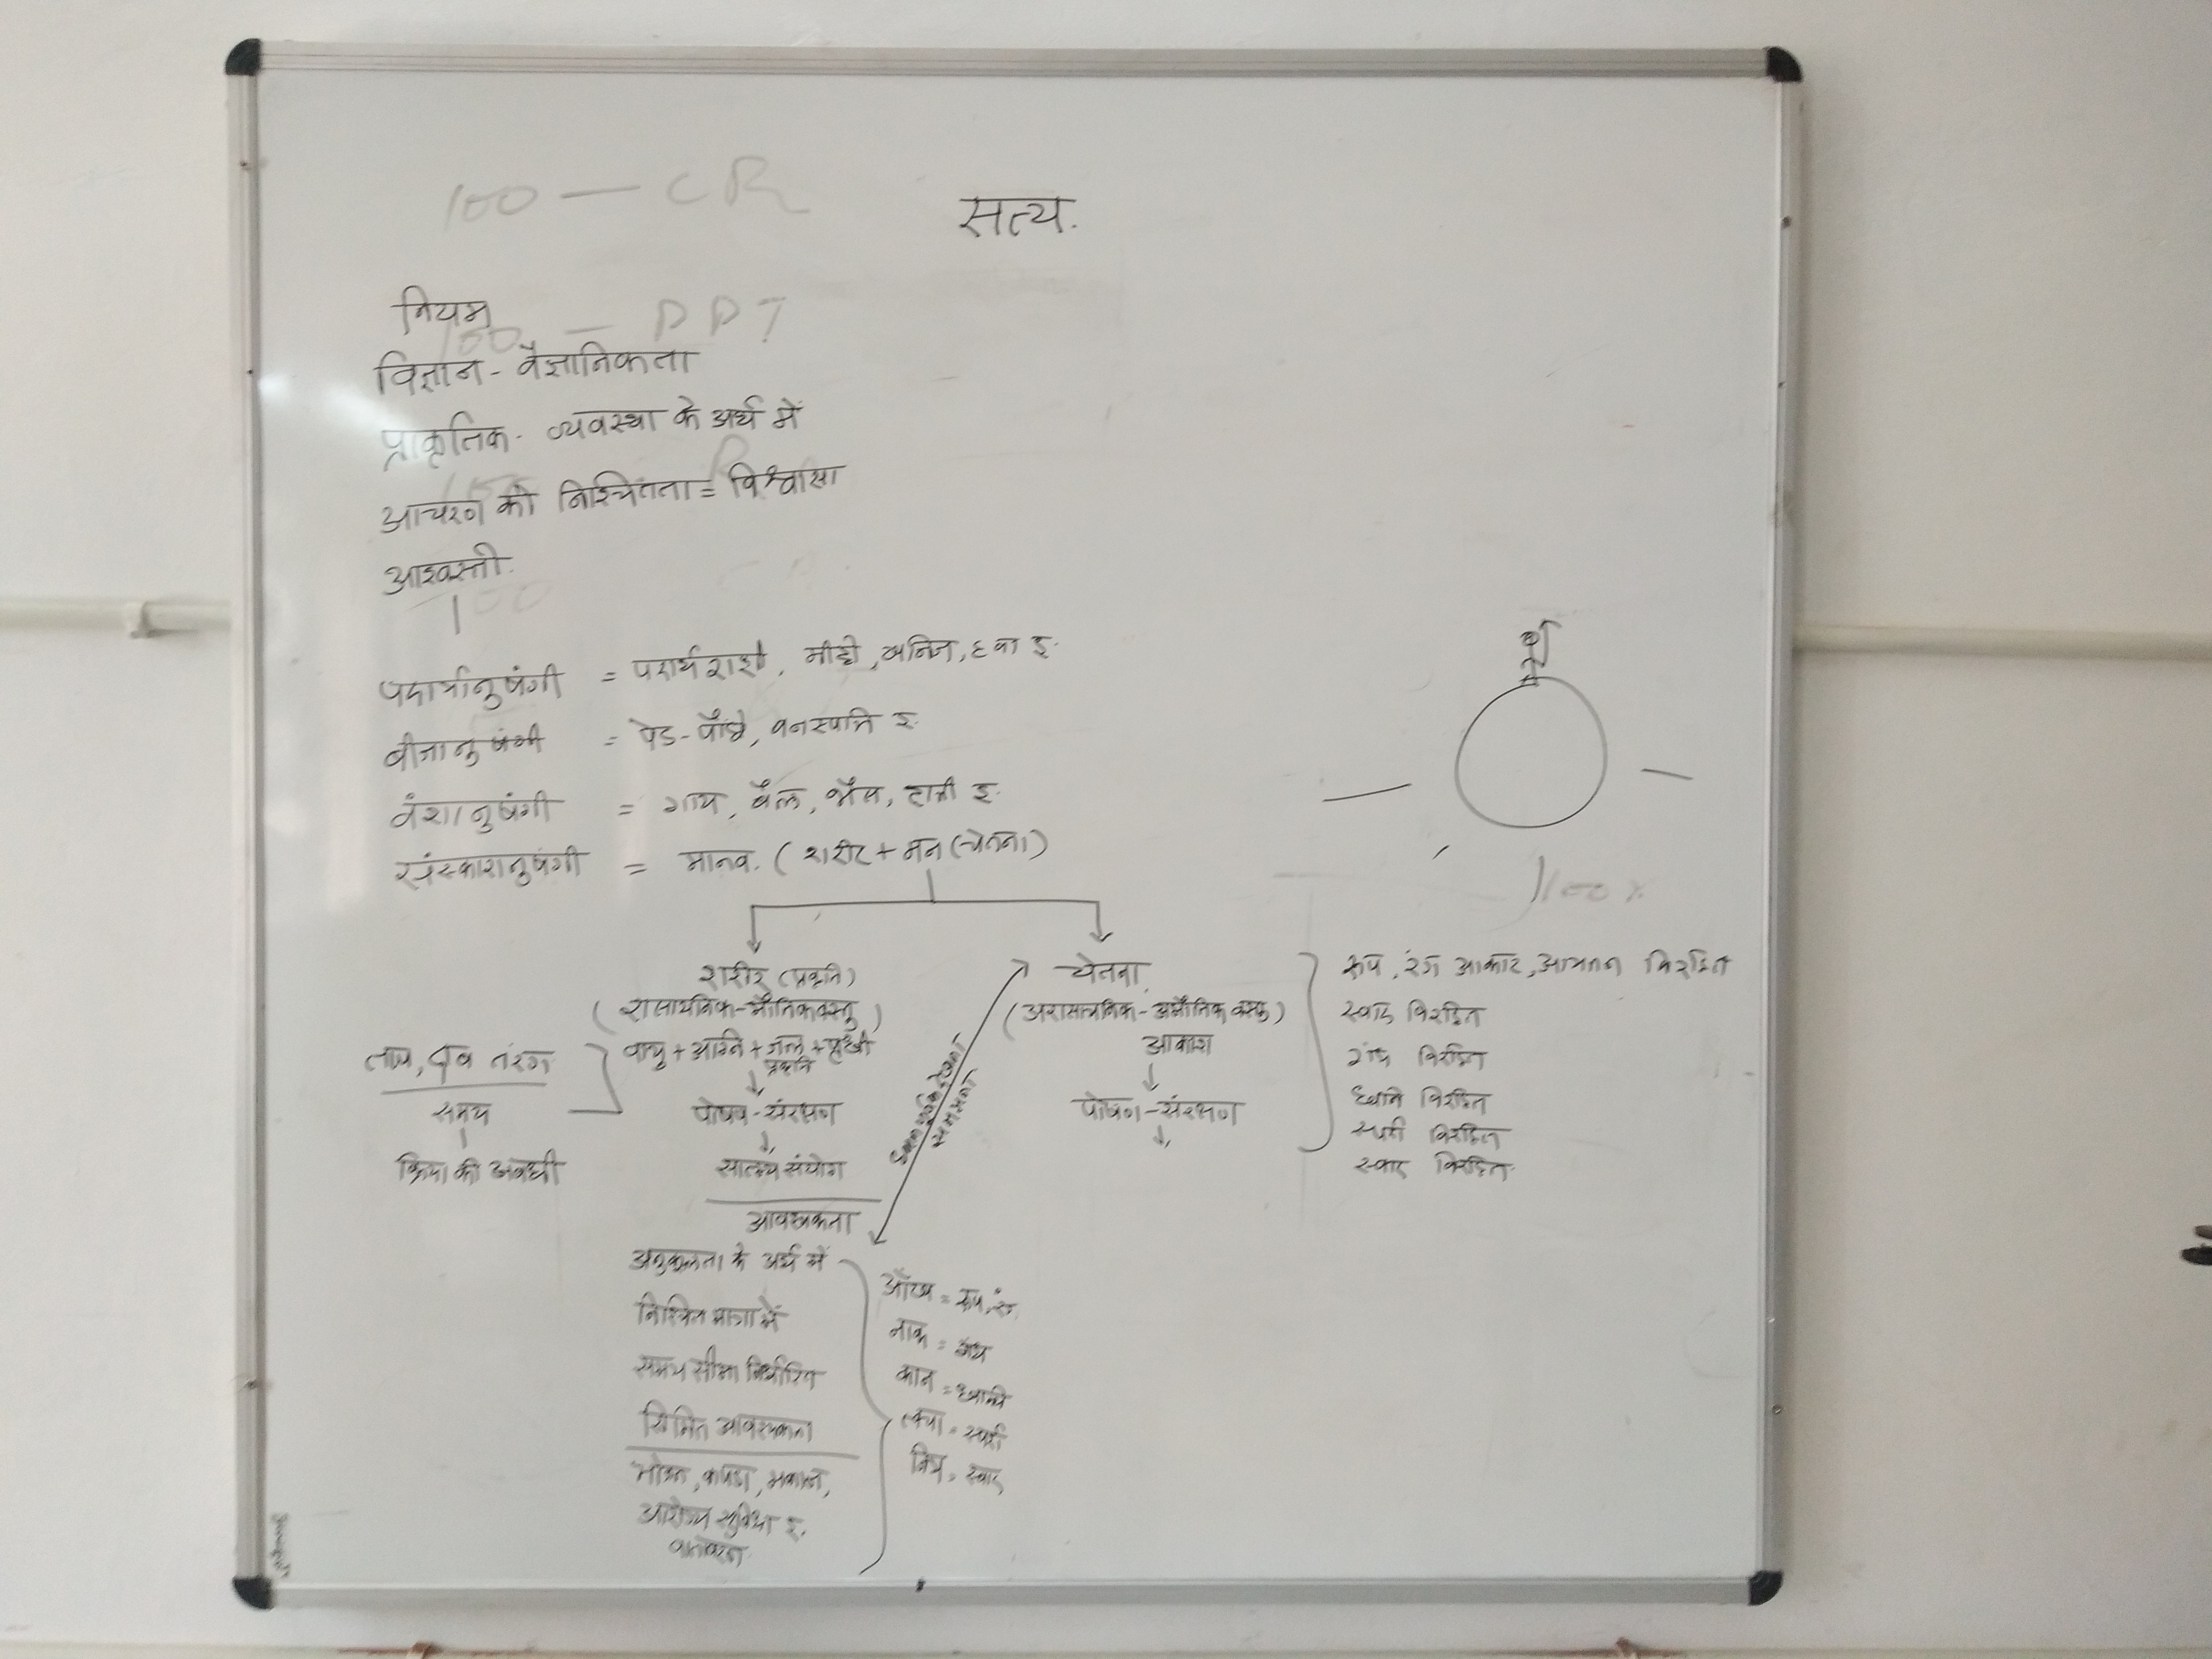 100 — CR
सत्य.
नियम
100 — PPT
विज्ञान - वैज्ञानिकता
प्राकृतिक - व्यवस्था के अर्थ में
आचरण की निश्चितता = विश्वास
आश्वस्ती.
100
पदार्थानुषंगी = पदार्थ राशी, मीट्टी, खनिज, हवा इ.
बीजानुषंगी = पेड-पौधे, वनस्पति इ.
वंशानुषंगी = गाय, बैल, भैंस, हाती इ.
संस्कारानुषंगी = मानव. (शरीर + मन (चेतना)
100%
शरीर (प्रकृति)
(रासायनिक-भौतिक वस्तु)
वायु + अग्नि + जल + पृथ्वी
प्रकृति
पोषण-संरक्षण
संयोग
आवश्यकता
ताप, तरंग
समय
क्रिया की अवधी
चेतना
(अरासायनिक-अभौतिक वस्तु)
आकाश
पोषण-संरक्षण
देखना
समझना
रूप, रंग आकार, आयतन विरहित
स्वाद विरहित
गंध विरहित
ध्वनि विरहित
स्पर्श विरहित
स्वाद विरहित
अनुकूलता के अर्थ में
निश्चित मात्रा में
समय सीमा निर्धारित
सिमित आवश्यकता
भोजन, कपडा, मकान,
आरोग्य सुविधा इ.
वातावरण
आँख = रूप, रंग
नाक = गंध
कान = ध्वनि
त्वचा = स्पर्श
स्वाद